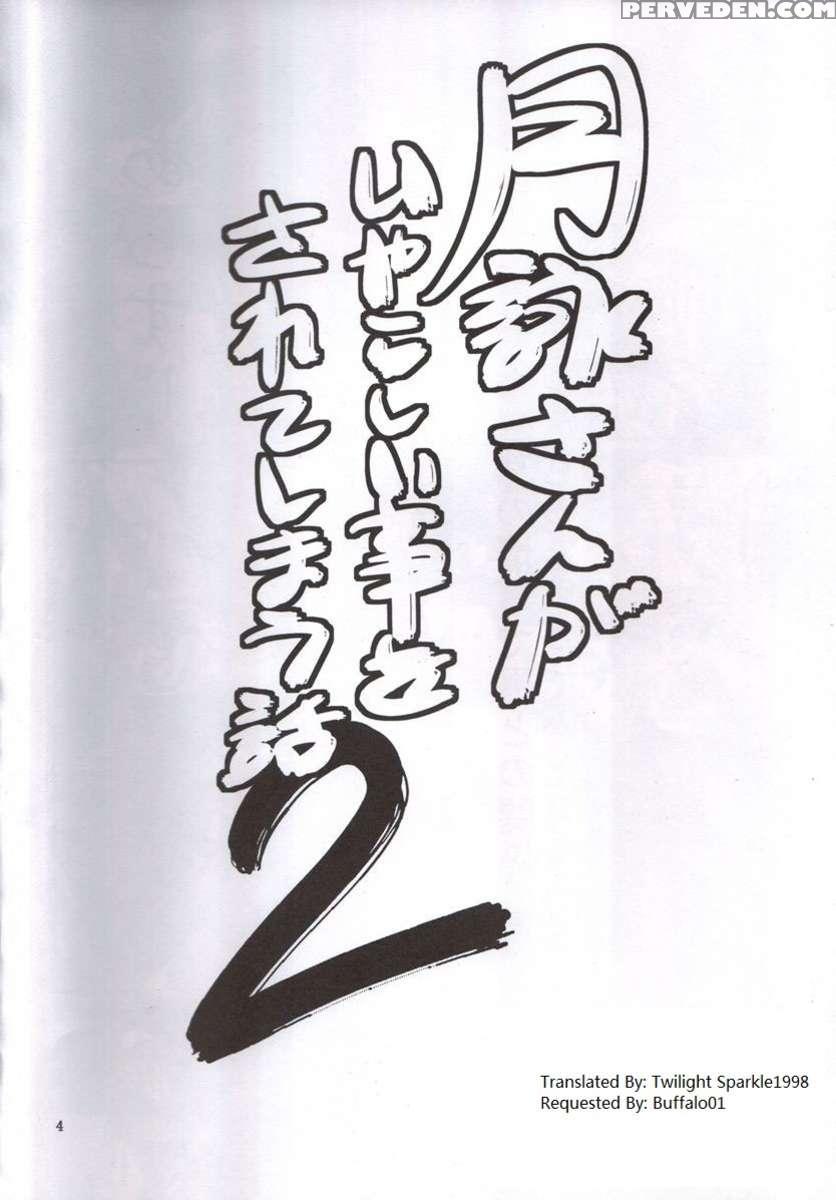 PERVEDEN.COM
月詠さんが
いやらしい事を
されてしまう話
2
Translated By: Twilight Sparkle1998
Requested By: Buffalo01
4